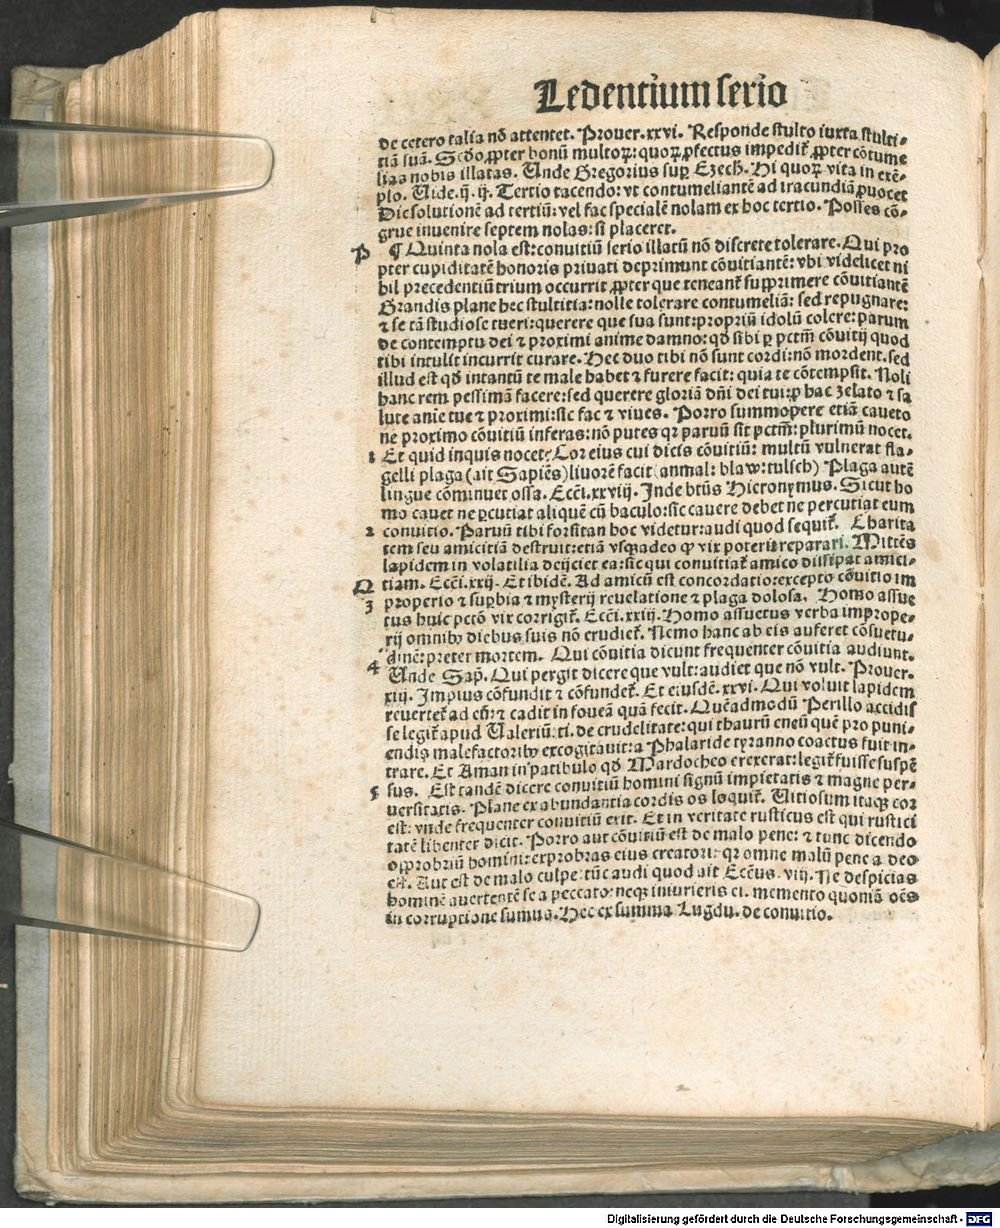 Ledentium serio
de cetero talia nō attentet. Prouer. xxvi. Responde stulto iuxta stulti-
tiā suā. Scdo ꝓpter bonū multoꝝ: quoꝝ ꝓfectus impedit̃ ꝓpter cōtume
lias nobis illatas. Unde Gregorius suꝑ Ezech. Hi quoꝝ vita in exē-
plo. Uide. q̄. ij. Tertio tacendo: vt contumeliantē ad iracundiā ꝓuocet
Dic solutionē ad tertiū: vel fac specialē nolam ex hoc tertio. Posses cō-
grue inuenire septem nolas: si placeret.
P ¶ Quinta nola est: conuitiū serio illatū nō discrete tolerare. Qui pro
pter cupiditatē honoris priuati deprimunt cōuitiantē: vbi videlicet ni
hil precedentiū trium occurrit ꝓpter que teneant̃ supprimere cōuitiantē
Grandis plane hec stultitia: nolle tolerare contumeliā: sed repugnare:
⁊ se tā studiose tueri: querere que sua sunt: propriū idolū colere: parum
de contemptu dei ⁊ proximi anime damno: qđ sibi ꝑ pctm̄ cōuitij quod
tibi intulit incurrit curare. Hec duo tibi nō sunt cordi: nō mordent. sed
illud est qđ intantū te male habet ⁊ furere facit: quia te cōtempsit. Noli
hanc rem pessimā facere: sed querere gloriā dn̄i dei tui: ꝓ hac zelato ⁊ sa
lute anīe tue ⁊ proximi: sic fac ⁊ viues. Porro summopere etiā caueto
ne proximo cōuitiū inferas: nō putes qꝛ paruū sit pctm̄: plurimū nocet.
1 Et quid inquis nocet? Cor eius cui dicis cōuitiū: multū vulnerat fla-
gelli plaga (ait Sapiēs) liuorē facit (anmal: blaw: tulsch) Plaga autē
lingue cōminuet ossa. Ecci. xxviij. Inde btūs Hieronymus. Sicut ho
mo cauet ne ꝑcutiat aliquē cū baculo: sic cauere debet ne percutiat eum
2 conuitio. Paruū tibi forsitan hoc videtur: audi quod sequit̃. Charita
tem seu amicitiā destruit: etiā vsqꝫadeo ꝙ vix poterit reparari. Mittēs
lapidem in volatilia deijciet ea: sic qui conuitiat̃ amico dissipat amici-
Q tiam. Ecci. xxij. Et ibidē. Ad amicū est concordatio: excepto cōuitio im
3 properio ⁊ suꝑbia ⁊ mysterij reuelatione ⁊ plaga dolosa. Homo assue
tus huic pctō vix corrigit̃. Ecci. xxiij. Homo assuetus verba imprope-
rij omnibꝫ diebus suis nō erudiet̃. Nemo hanc ab eis auferet cōsuetu-
dinē: preter mortem. Qui cōuitia dicunt frequenter cōuitia audiunt.
4 Unde Sap̄. Qui pergit dicere que vult: audiet que nō vult. Prouer.
xiij. Impius cōfundit ⁊ cōfundet̃. Et eiusdē. xxvi. Qui voluit lapidem
reuertet̃ ad eū: ⁊ cadit in foueā quā fecit. Quēadmodū Perillo accidis
se legit̃ apud Ualeriū: ti. de crudelitate: qui thaurū eneū quē pro puni-
endis malefactoribꝫ excogitauit: a Phalaride tyranno coactus fuit in-
trare. Et Aman in patibulo qđ Mardocheo erexerat: legit̃ fuisse suspē
5 sus. Est tandē dicere conuitiū homini signū impietatis ⁊ magne per-
uersitatis. Plane ex abundantia cordis os loquit̃. Uitiosum itaqꝫ cor
est: vnde frequenter conuitiū exit. Et in veritate rusticus est qui rustici
tatē libenter dicit. Porro aut cōuitiū est de malo pene: ⁊ tunc dicendo
opprobriū homini: exprobras eius creatori: qꝛ omne malū pene a deo
est. Aut est de malo culpe: tūc audi quod ait Eccūs. viij. Ne despicias
hominē auertentē se a peccato: neqꝫ iniurieris ei. memento quoniā oēs
in corruptione sumus. Hec ex summa Lugdu. de conuitio.
Digitalisierung gefördert durch die Deutsche Forschungsgemeinschaft - DFG